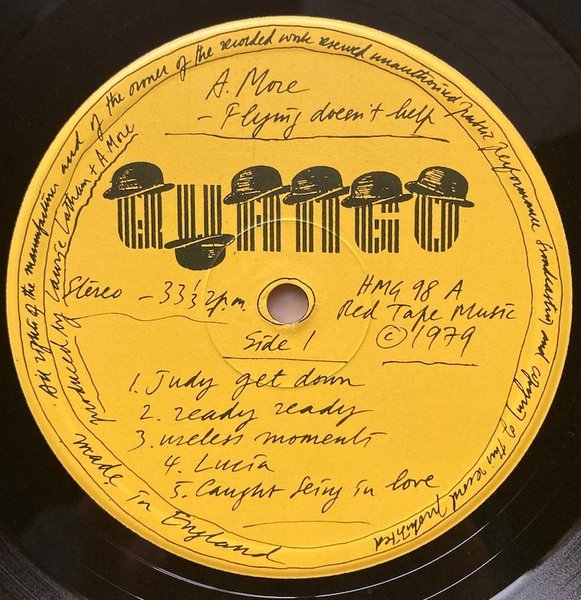 All rights of the manufacturer and of the owner of the recorded work reserved unauthorised public performance broadcasting and copying of this record prohibited
produced by Laurie Latham + A. More
A. More
- Flying doesn't help
QUANGO
Stereo - 33⅓ r.p.m.
HMG 98 A
Red Tape Music
© 1979
Side 1
1. Judy get down
2. ready ready
3. useless moments
4. Lucia
5. Caught being in love
made in England